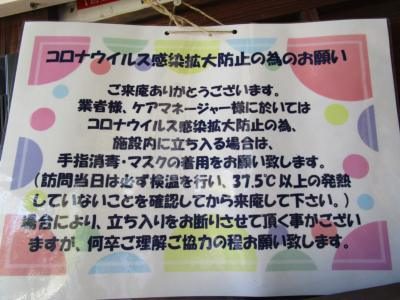 コロナウイルス感染拡大防止の為のお願い
ご来庵ありがとうございます。
業者様、ケアマネージャー様に於いては
コロナウイルス感染拡大防止の為、
施設内に立ち入る場合は、
手指消毒・マスクの着用をお願い致します。
（訪問当日は必ず検温を行い、37.5℃以上の発熱
していないことを確認してから来庵して下さい。）
場合により、立ち入りをお断りさせて頂く事がござい
ますが、何卒ご理解ご協力の程お願い致します。